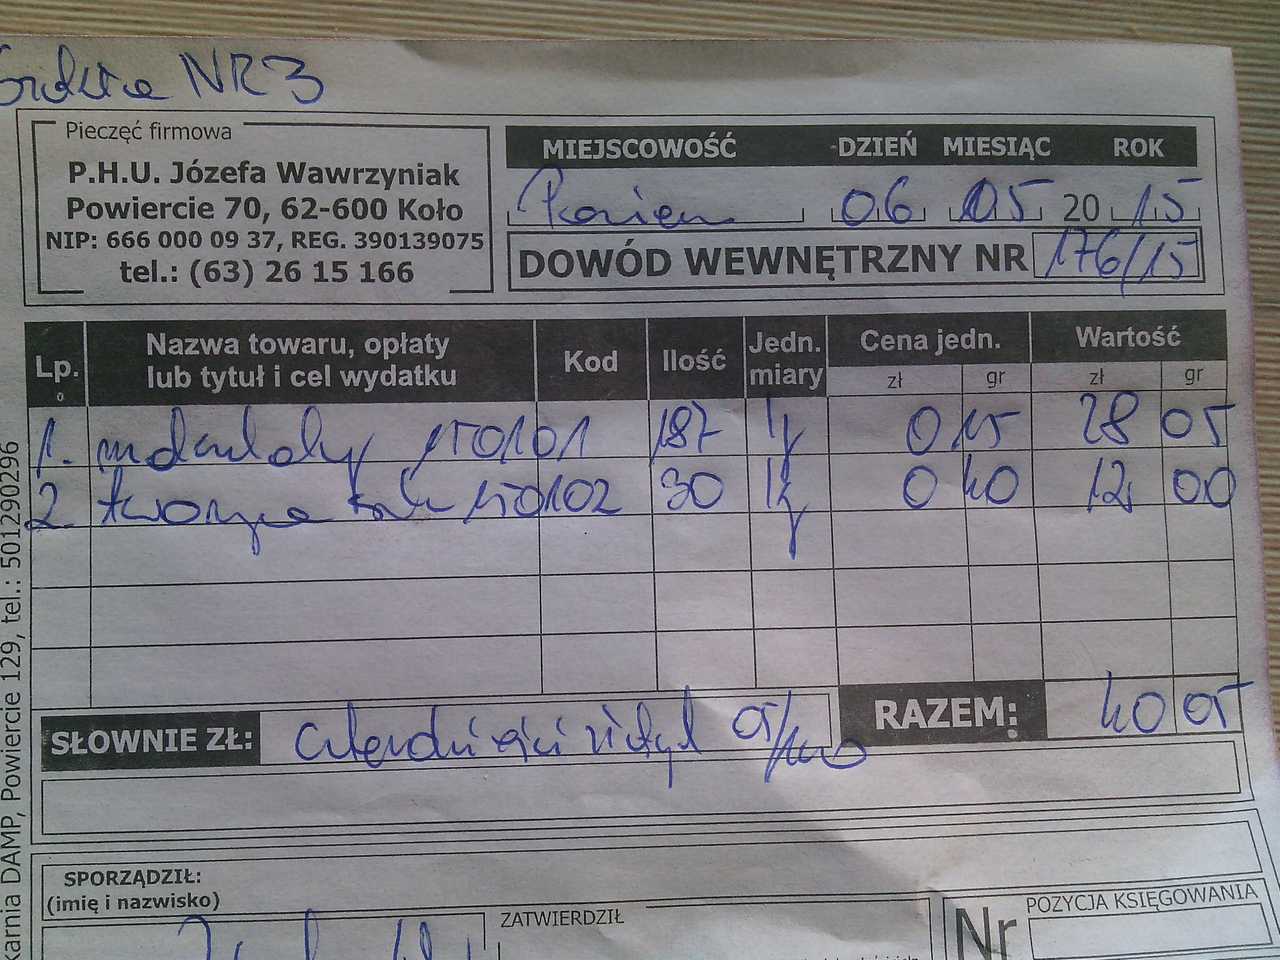 NR 3
Pieczęć firmowa
P.H.U. Józefa Wawrzyniak
Powiercie 70, 62-600 Koło
NIP: 666 000 09 37, REG. 390139075
tel.: (63) 26 15 166
MIEJSCOWOŚĆ DZIEŃ MIESIĄC ROK
Konien 06 05 20 15
DOWÓD WEWNĘTRZNY NR 176/15
Lp. Nazwa towaru, opłaty lub tytuł i cel wydatku Kod Ilość Jedn. miary Cena jedn. zł gr Wartość zł gr
1. makulatury 150101 187 kg 0 15 28 05
2. 150102 30 kg 0 40 12 00
RAZEM: 40 05
SŁOWNIE ZŁ: czterdzieści złotych 05/100
SPORZĄDZIŁ:
(imię i nazwisko)
ZATWIERDZIŁ
POZYCJA KSIĘGOWANIA
Nr
karnia DAMP, Powiercie 129, tel.: 501290296